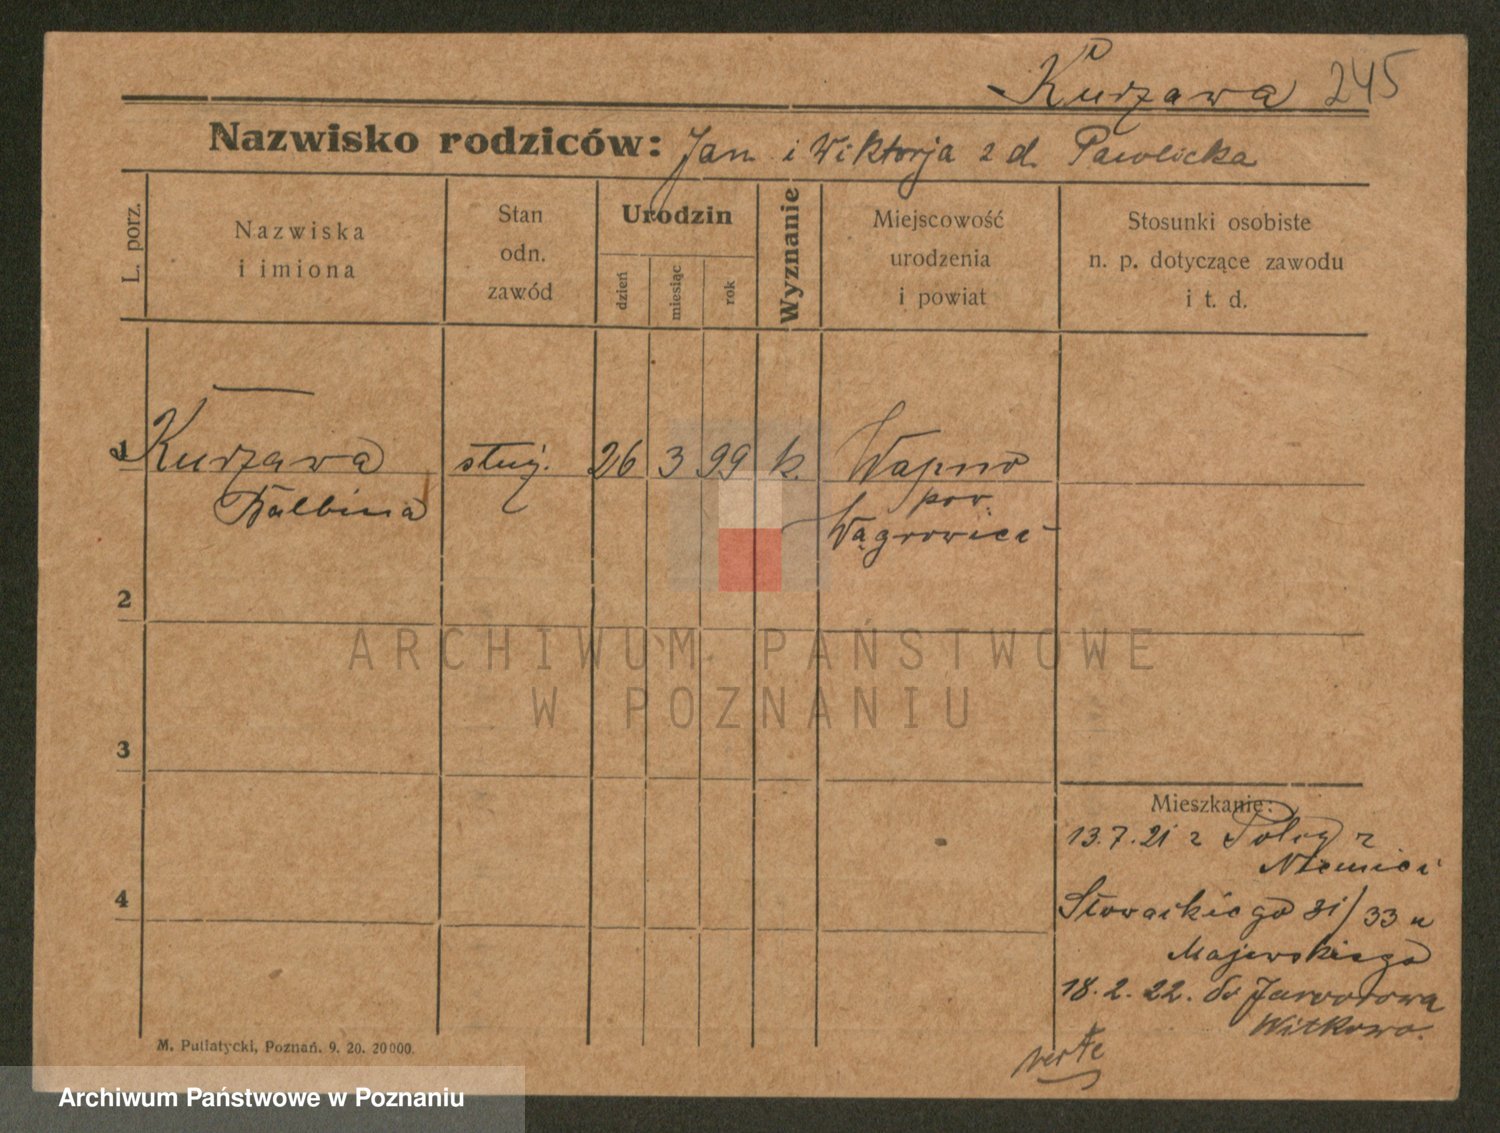 Kurzawa 245
Nazwisko rodziców: Jan i Wiktorja z d. Pawlicka
L. porz.
Nazwiska
i imiona
Stan
odn.
zawód
Urodzin
dzień
miesiąc
rok
Wyznanie
Miejscowość
urodzenia
i powiat
Stosunki osobiste
n. p. dotyczące zawodu
i t. d.
1 Kurzawa służ. 26 3 99 k. Wapno
Balbina pow.
Wągrowiec
2
3
4
Mieszkanie:
13.7.21 z
Niemiec
Słowackiego 31/33 u
Majewskiego
18.2.22. do Jaworowa
Witkowo.
verte
M. Putiatycki, Poznań. 9. 20. 20000.
ARCHIWUM PAŃSTWOWE
W POZNANIU
Archiwum Państwowe w Poznaniu